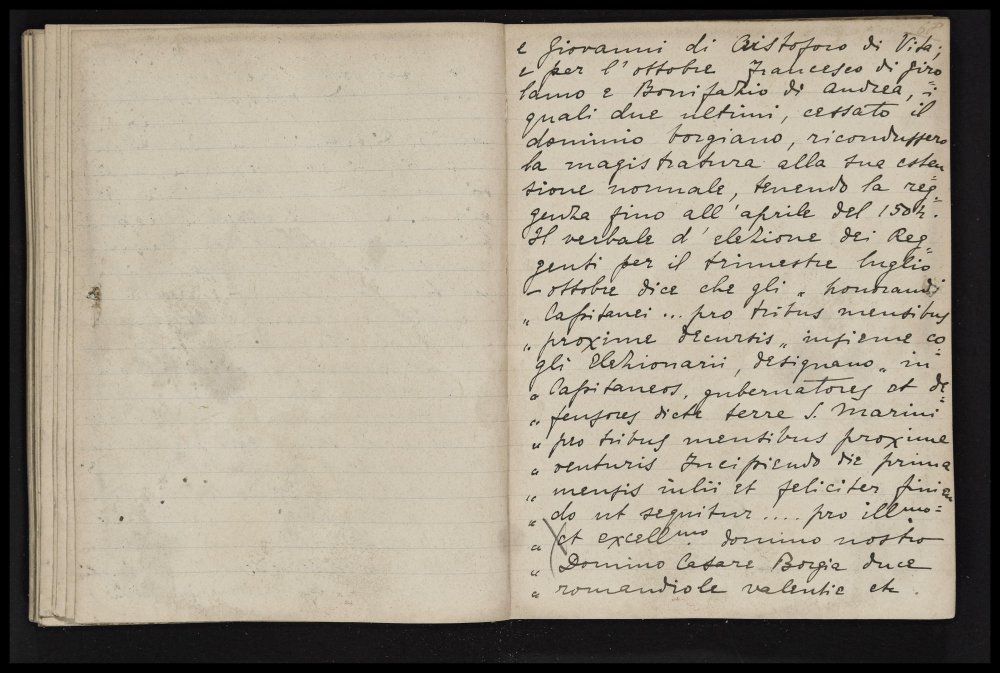 e Giovanni di Cristoforo di Vita;
e per l'ottobre Francesco di Giro=
lamo e Bonifazio di Andrea, i
quali due ultimi, cessato il
dominio borgiano, ricondussero
la magistratura alla sua esten=
sione normale, tenendo la reg=
genza fino all'aprile del 1504.
Il verbale d'elezione dei Reg=
genti per il trimestre luglio
- ottobre dice che gli „ honorandi
„ Capitanei ... pro tribus mensibus
„ proxime decursis „ insieme co=
gli Elezionarii, designano „ in
„ Capitaneos, gubernatores et de=
„ fensores dicte terre S. Marini
„ pro tribus mensibus proxime
„ venturis Incipiendo die prima
„ mensis iulii et feliciter finien
„ do ut sequitur .... pro illmo=
„ et excellmo domino nostro
„ Domino Cesare Borgia duce
„ romandiole valentie etc.